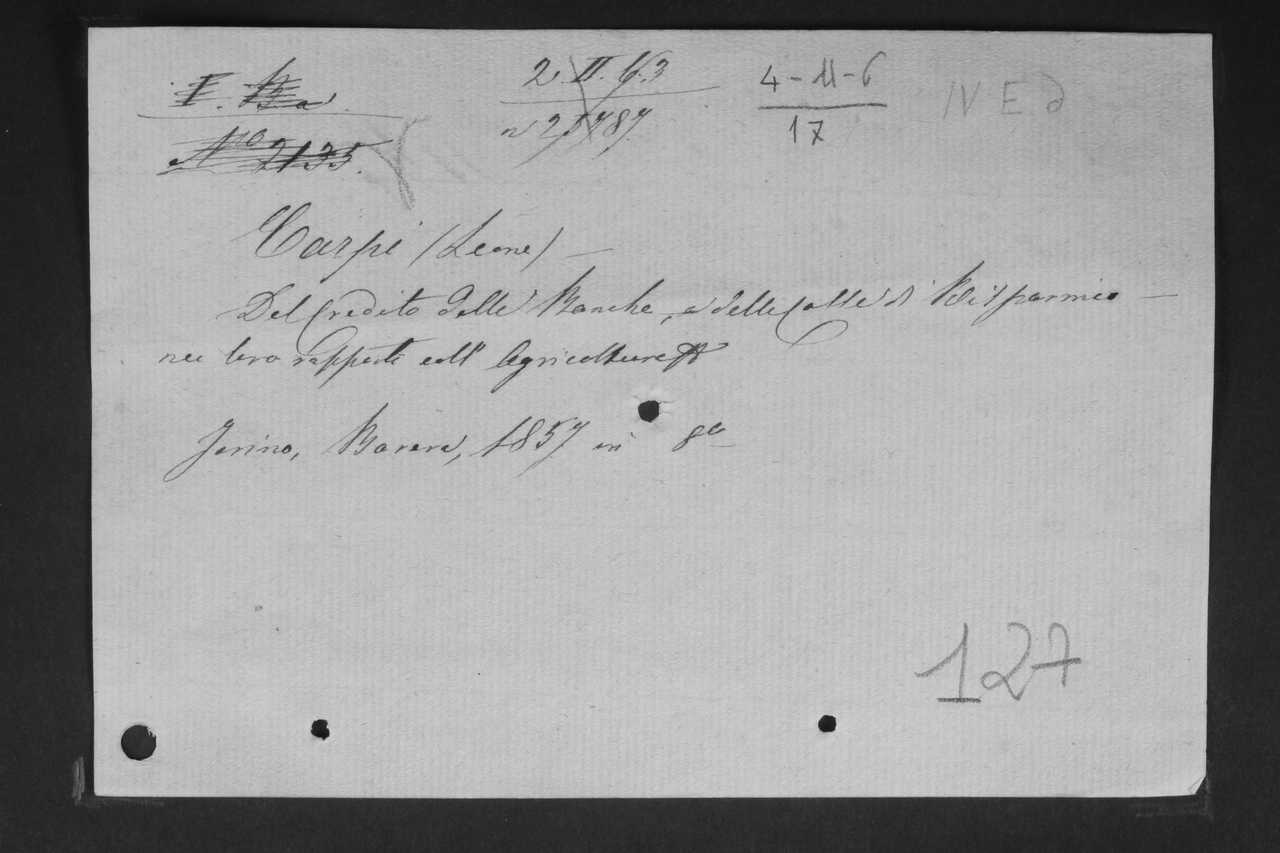 I. Ba 2. II. 6.3 4-11-6 IV E d
No 2135. n 25787 17
Carpi (Leone) —
Del Credito delle Banche, e delle Casse di Risparmio —
nei loro rapporti coll' Agricoltura
Torino, Barera, 1857 in 8o
127